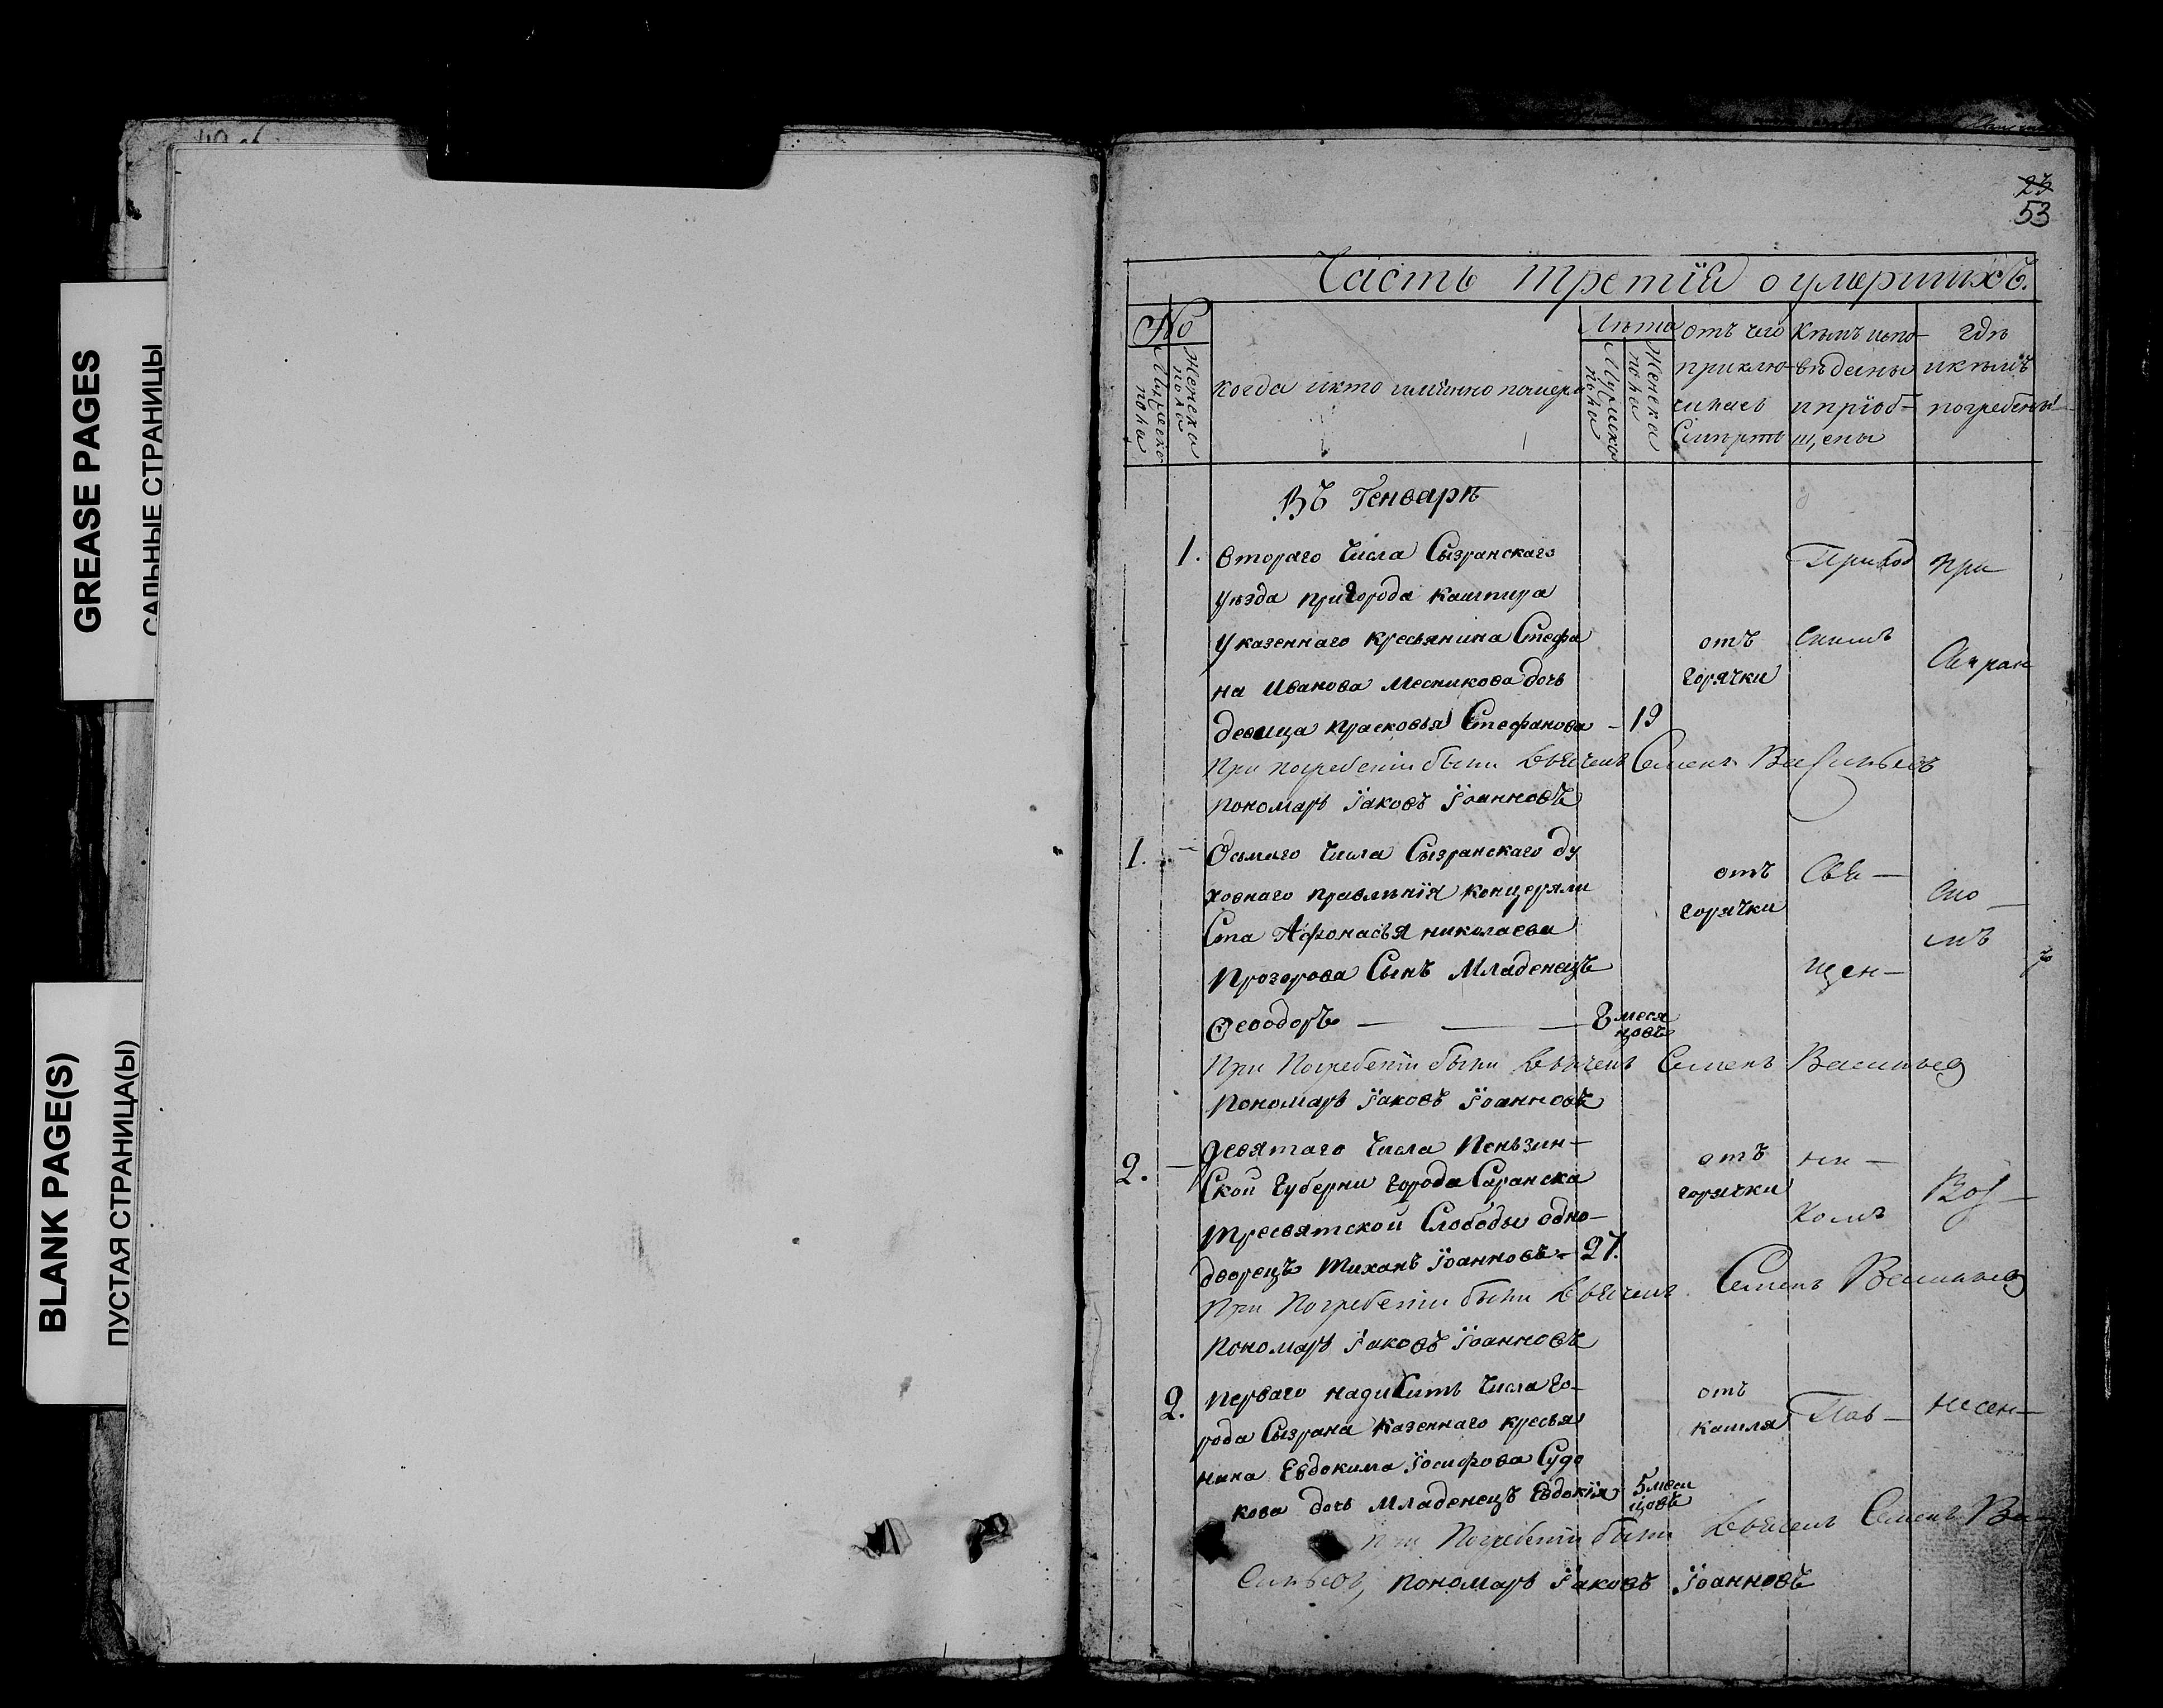 GREASE PAGES
САЛЬНЫЕ СТРАНИЦЫ
BLANK PAGE(S)
ПУСТАЯ СТРАНИЦА(Ы)
23
53
Часть третїя о умершихъ.
№
Мужеска пола
Женска пола
когда и кто имянно померъ
Лѣта
Мужеска пола
Женска пола
отъ чего приклю-
чилась
Смерть
Кѣмъ испо-
вѣданы
и прїоб-
щены
гдѣ
и кѣмъ
погребены
Въ Генварѣ
1. Втораго числа Сызранскаго
уѣзда пригорода кашпира
указеннаго кресьянина Стефа
на Иванова Месникова дочь
девица прасковья Стефанова - 19
отъ
горячки
Приход
Скимъ
при
При погребенїи были Семенъ Васильевъ
пономарь Їаковъ Їоанновъ
1. - Осьмаго числа Сызранскаго ду
ховнаго правленїя концеряли
Ста Афонасья николаева
Прозорова Сынъ Младенецъ
Феодоръ — — — 8 меся
цовъ
отъ
горячки
Свя —
щен —
При Погребенїи были Семенъ Васильев
Пономарь Їаковъ Їоанновъ
2. — Девятаго числа Пеньзин-
Ской Губерни города Саранска
Тресвятской Слободы одно-
дворецъ Тиханъ Їоанновъ - 27.
отъ
горячки
ни —
комъ
Воз —
При Погребенїи были Семенъ Васильев
Пономарь Їаковъ Їоанновъ
2. Перваго надесить числа го-
рода Сызрана казеннаго кресья
нина Евдокима Їосифова Судо
кова дочь Младенецъ Евдокїя 5 меси
цовъ
отъ
кашля
Пав —
несен —
При Погребенїи были Семенъ Ва
сильев, Пономарь Їаковъ Їоанновъ